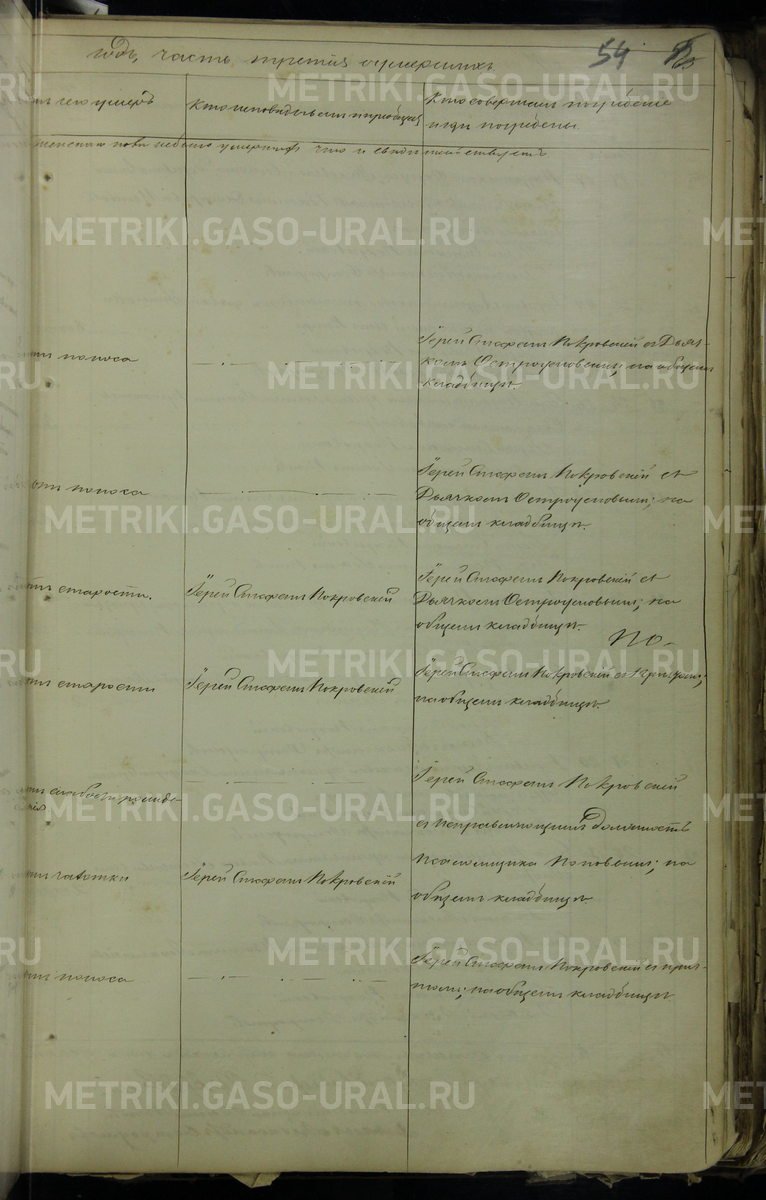 годъ, часть третiя умершихъ 54
отъ чего умеръ
Кто исповѣдывалъ и приобщалъ
Кто совершалъ погребенiе
и гдѣ погребены.
умершихъ что и свидѣтельствуетъ
METRIKI.GASO-URAL.RU
отъ поноса
Iерей Стефанъ Покровскiй съ Дьяч-
комъ Остроумовымъ; на общемъ
кладбищѣ.
отъ поноса
Iерей Стефанъ Покровскiй съ
Дьячкомъ Остроумовымъ; на
общемъ кладбищѣ.
отъ старости.
Iерей Стефанъ Покровскiй
Iерей Стефанъ Покровскiй съ
Дьячкомъ Остроумовымъ; на
общемъ кладбищѣ.
По-
отъ старости
Iерей Стефанъ Покровскiй
Iерей Стефанъ Покровскiй съ
на общемъ кладбищѣ.
отъ слабости рожде-
нiя
Iерей Стефанъ Покровскiй
съ исправляющимъ должность
псаломщика Поповымъ; на
общемъ кладбищѣ.
отъ чахотки
Iерей Стефанъ Покровскiй
отъ поноса
Iерей Стефанъ Покровскiй съ прич-
томъ; на общемъ кладбищѣ